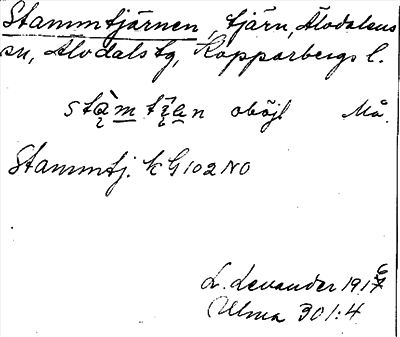 Stammtjärnen, tjärn, Älvdalens
sn, Älvdals tg, Kopparbergs l.
stàm tjä̀n oböjl Må.
Stammtj. k G 102 NO
L. Levander 1916
Ulma 301:4